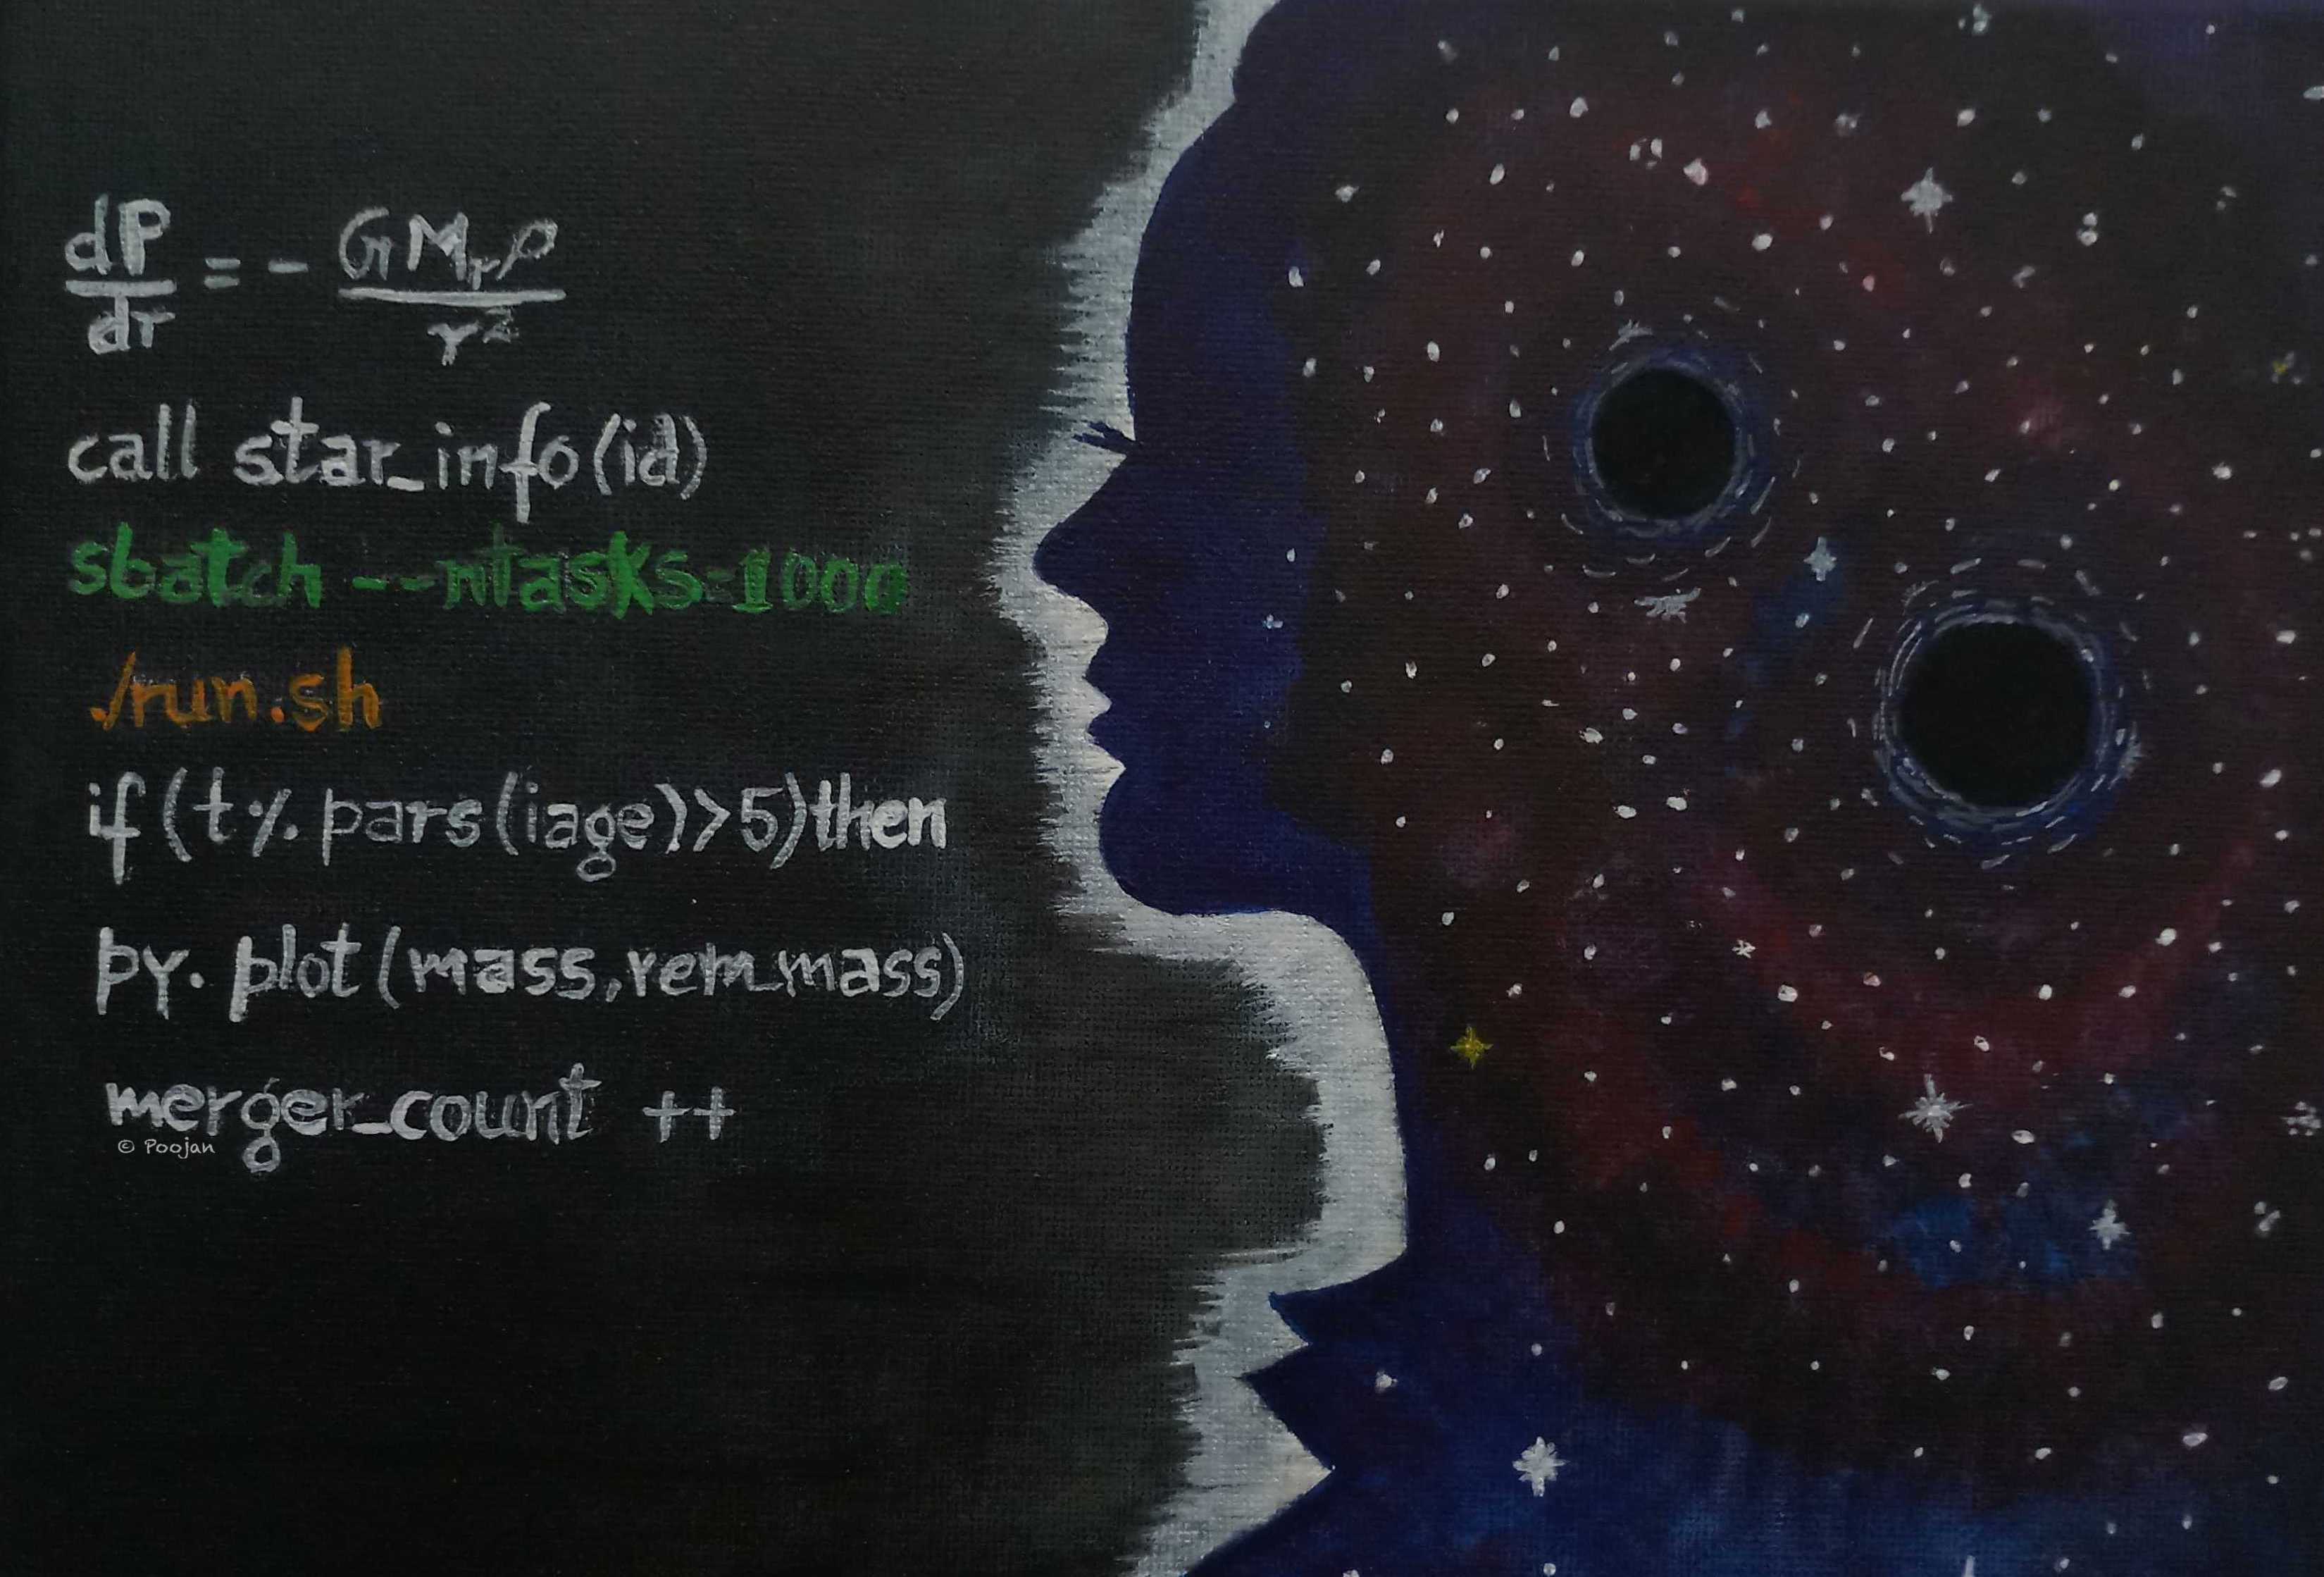 dP/dr = - GMᵣρ/r²
call star_info(id)
sbatch --ntasks=1000
./run.sh
if(t%pars(iage)>5)then
py.plot(mass,rem_mass)
merger_count ++
© Poojan